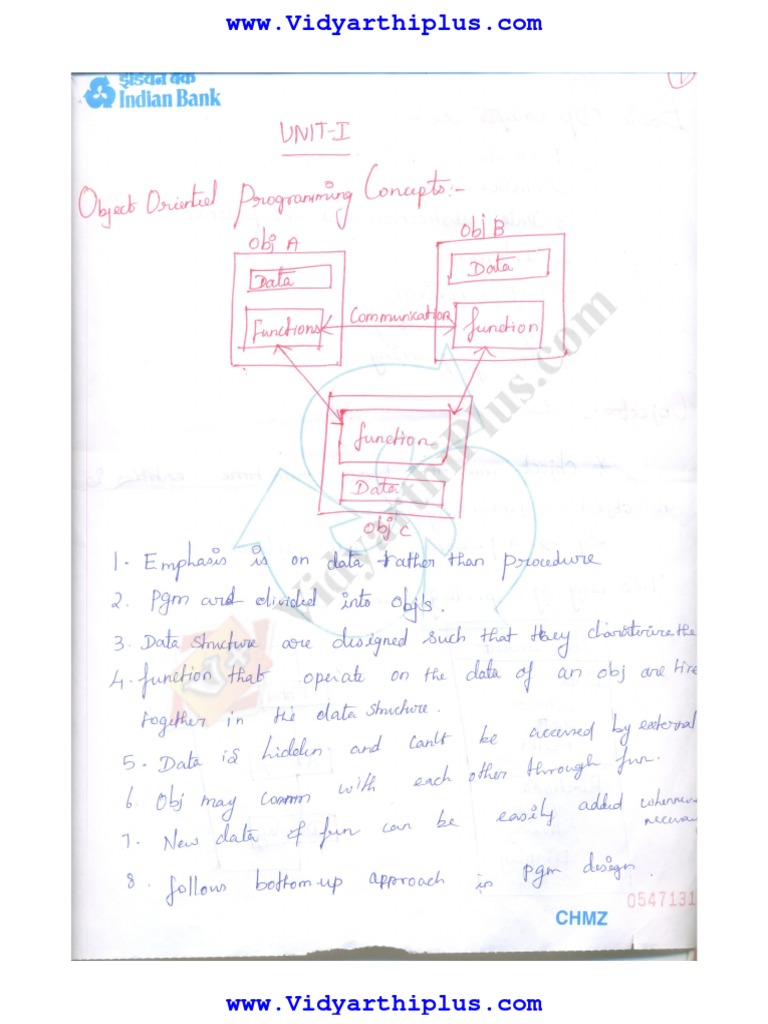 www.Vidyarthiplus.com
इंडियन बैंक
Indian Bank
1
UNIT-I
Object Oriented Programming Concepts:-
Obj A
Obj B
Data
Data
Functions
Communication
function
function
Data
Obj C
1. Emphasis is on data rather than procedure
2. Pgm are divided into Objs.
3. Data structure are designed such that they the
4. function that operate on the data of an obj are
together in the data structure.
5. Data is hidden and can't be accessed by external
6. Obj may comm with each other through fun.
7. New data & fun can be easily added whenever
8. follows bottom-up approach in pgm design.
0547131
CHMZ
VidyarthiPlus.com
V+
www.Vidyarthiplus.com